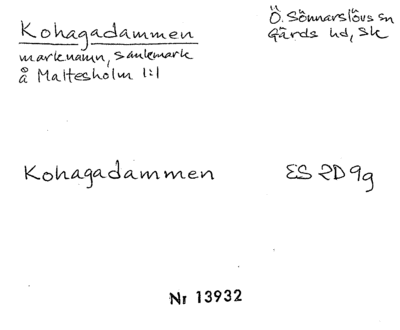 Kohagadammen
marknamn, sankmark
å Maltesholm 1:1
Ö. Sönnarslövs sn
Gärds hd, Sk
Kohagadammen
ES 2D 9g
Nr 13932